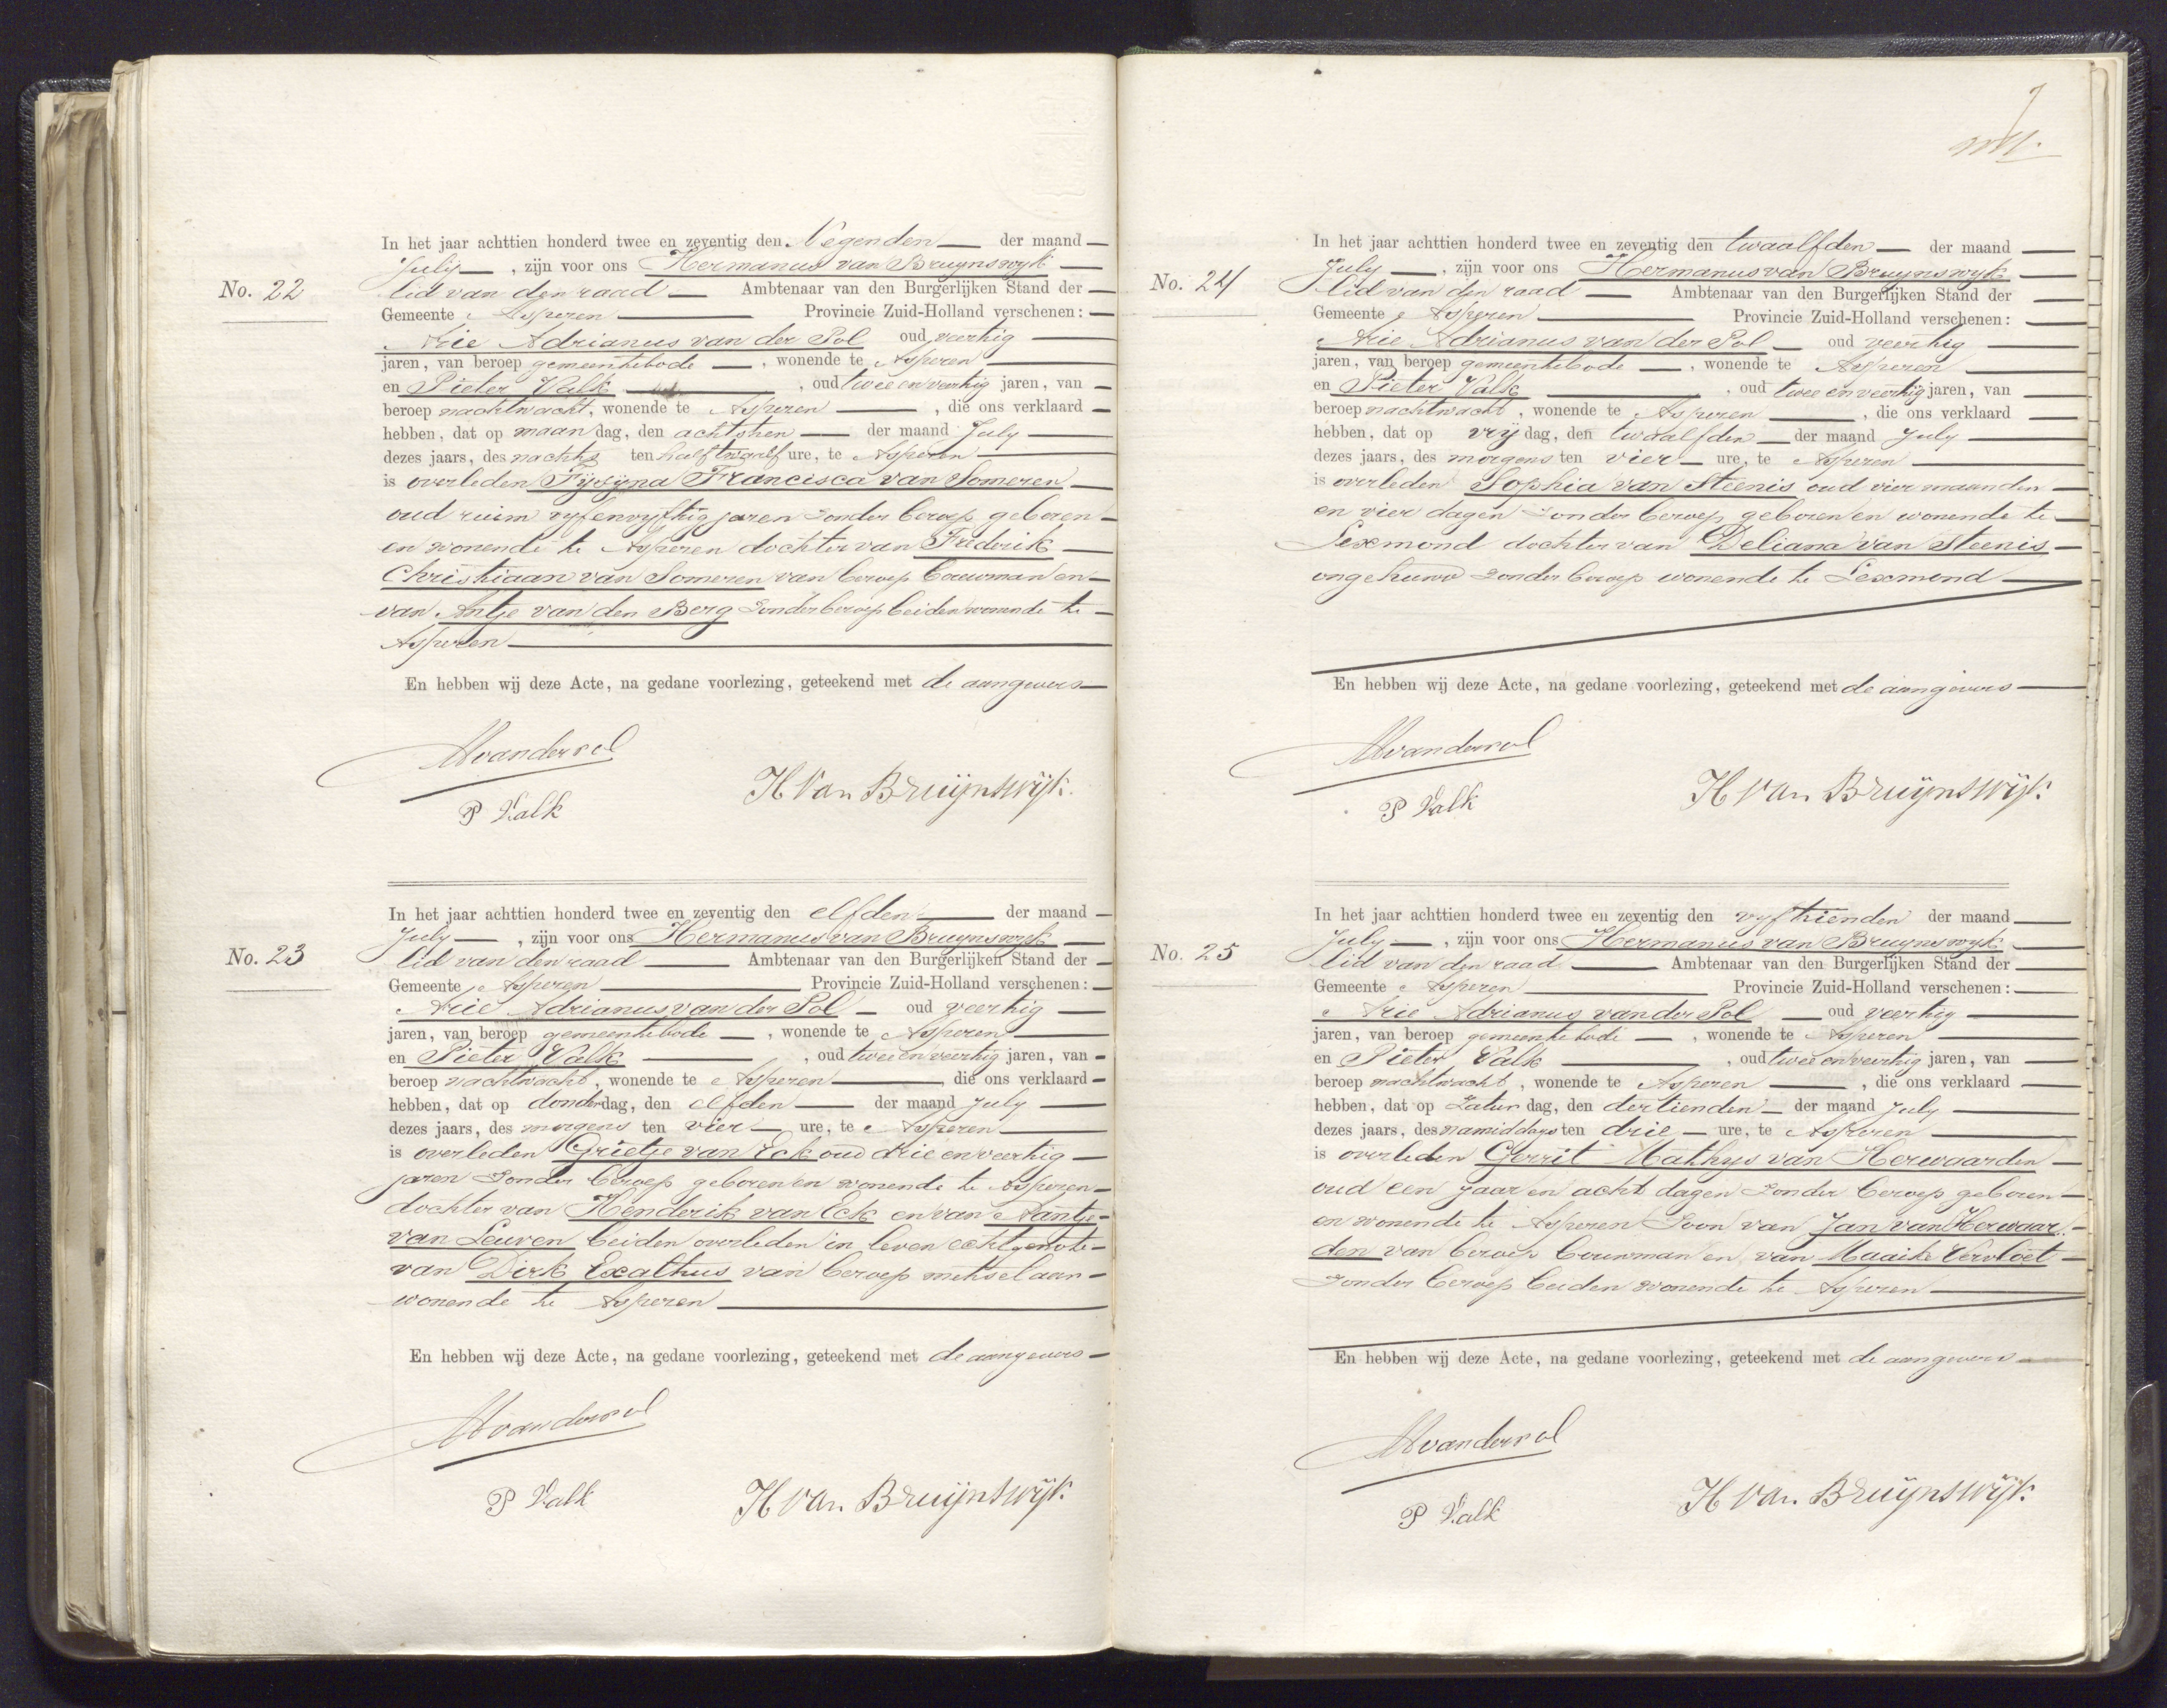 No. 22
In het jaar achttien honderd twee en zeventig den Negenden der maand
July, zijn voor ons Hermanus van Bruynswyk
lid van den raad Ambtenaar van den Burgerlijken Stand der
Gemeente Asperen Provincie Zuid-Holland verschenen:
Arie Adrianus van der Pol oud veertig
jaren, van beroep gemeentebode, wonende te Asperen
en Pieter Valk, oud twee en veertig jaren, van
beroep nachtwacht, wonende te Asperen, die ons verklaard
hebben, dat op maandag, den achtsten der maand July
dezes jaars, des nachts ten half twaalf ure, te Asperen
is overleden Fysyna Francisca van Someren
oud ruim vyfenvyftig jaren zonder beroep geboren
en wonende te Asperen dochter van Frederik
Christiaan van Someren van beroep bouwman en
van Antje van den Berg zonder beroep beiden wonende te
Asperen
En hebben wij deze Acte, na gedane voorlezing, geteekend met de aangevers
AAvanderpol
P Valk
H van Bruijnswijk.
No. 23
In het jaar achttien honderd twee en zeventig den elfden der maand
July, zijn voor ons Hermanus van Bruynswyk
lid van den raad Ambtenaar van den Burgerlijken Stand der
Gemeente Asperen Provincie Zuid-Holland verschenen:
Arie Adrianus van der Pol oud veertig
jaren, van beroep gemeentebode, wonende te Asperen
en Pieter Valk, oud twee en veertig jaren, van
beroep nachtwacht, wonende te Asperen, die ons verklaard
hebben, dat op donderdag, den elfden der maand July
dezes jaars, des morgens ten vier ure, te Asperen
is overleden Grietje van Eck oud drie en veertig
jaren zonder beroep geboren en wonende te Asperen
dochter van Henderik van Eck en van Aantje
van Leuven beiden overleden in leven echtgenote
van Dirk Exalthus van beroep metselaar
wonende te Asperen
En hebben wij deze Acte, na gedane voorlezing, geteekend met de aangevers
AAvanderpol
P Valk
H van Bruijnswijk
7
No. 24
In het jaar achttien honderd twee en zeventig den twaalfden der maand
July, zijn voor ons Hermanus van Bruynswyk
lid van den raad Ambtenaar van den Burgerlijken Stand der
Gemeente Asperen Provincie Zuid-Holland verschenen:
Arie Adrianus van der Pol oud veertig
jaren, van beroep gemeentebode, wonende te Asperen
en Pieter Valk, oud twee en veertig jaren, van
beroep nachtwacht, wonende te Asperen, die ons verklaard
hebben, dat op vrydag, den twaalfden der maand July
dezes jaars, des morgens ten vier ure, te Asperen
is overleden Sophia van Steenis oud vier maanden
en vier dagen zonder beroep geboren en wonende te
Lexmond dochter van Deliana van Steenis
ongehuwd zonder beroep wonende te Lexmond
En hebben wij deze Acte, na gedane voorlezing, geteekend met de aangevers
AAvanderpol
P Valk
H van Bruijnswijk
No. 25
In het jaar achttien honderd twee en zeventig den vyftienden der maand
July, zijn voor ons Hermanus van Bruynswyk
lid van den raad Ambtenaar van den Burgerlijken Stand der
Gemeente Asperen Provincie Zuid-Holland verschenen:
Arie Adrianus van der Pol oud veertig
jaren, van beroep gemeentebode, wonende te Asperen
en Pieter Valk, oud twee en veertig jaren, van
beroep nachtwacht, wonende te Asperen, die ons verklaard
hebben, dat op Zaturdag, den dertienden der maand July
dezes jaars, des namiddags ten drie ure, te Asperen
is overleden Gerrit Mathys van Herwaarden
oud een jaar en acht dagen zonder beroep geboren
en wonende te Asperen Zoon van Jan van Herwaar-
den van beroep bouwman en van Maaike Vervloet
zonder beroep beiden wonende te Asperen
En hebben wij deze Acte, na gedane voorlezing, geteekend met de aangevers
AAvanderpol
P Valk
H van Bruijnswijk